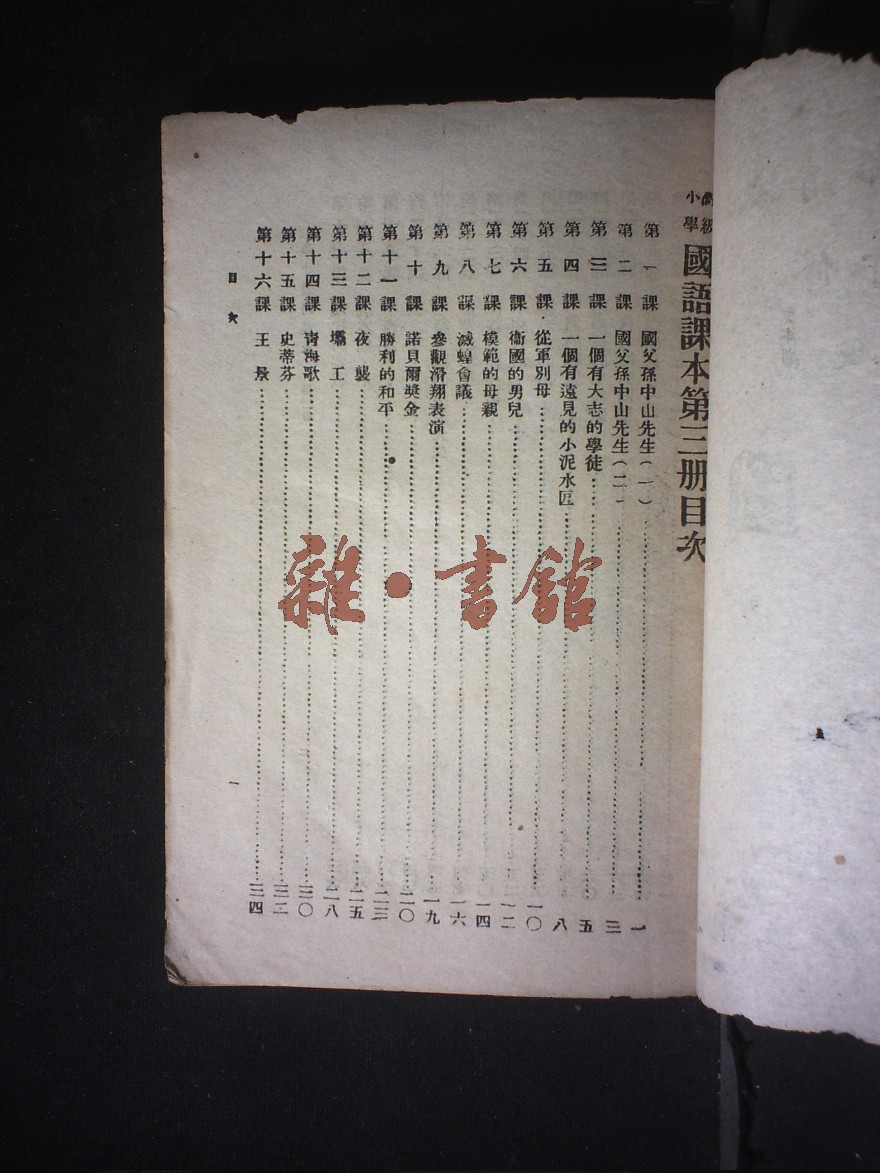 高級小學 國語課本第三册目次
第一課 國父孫中山先生(一)……一
第二課 國父孫中山先生(二)……三
第三課 一個有大志的學徒……五
第四課 一個有遠見的小泥水匠……八
第五課 從軍別母……一〇
第六課 衞國的男兒……一二
第七課 模範的母親……一四
第八課 滅蝗會議……一六
第九課 參觀滑翔表演……一九
第十課 諾貝爾獎金……二〇
第十一課 勝利的和平……二三
第十二課 夜襲……二五
第十三課 壩工……二八
第十四課 青海歌……三〇
第十五課 史蒂芬……三二
第十六課 王景……三四
目次
一
雜·書館